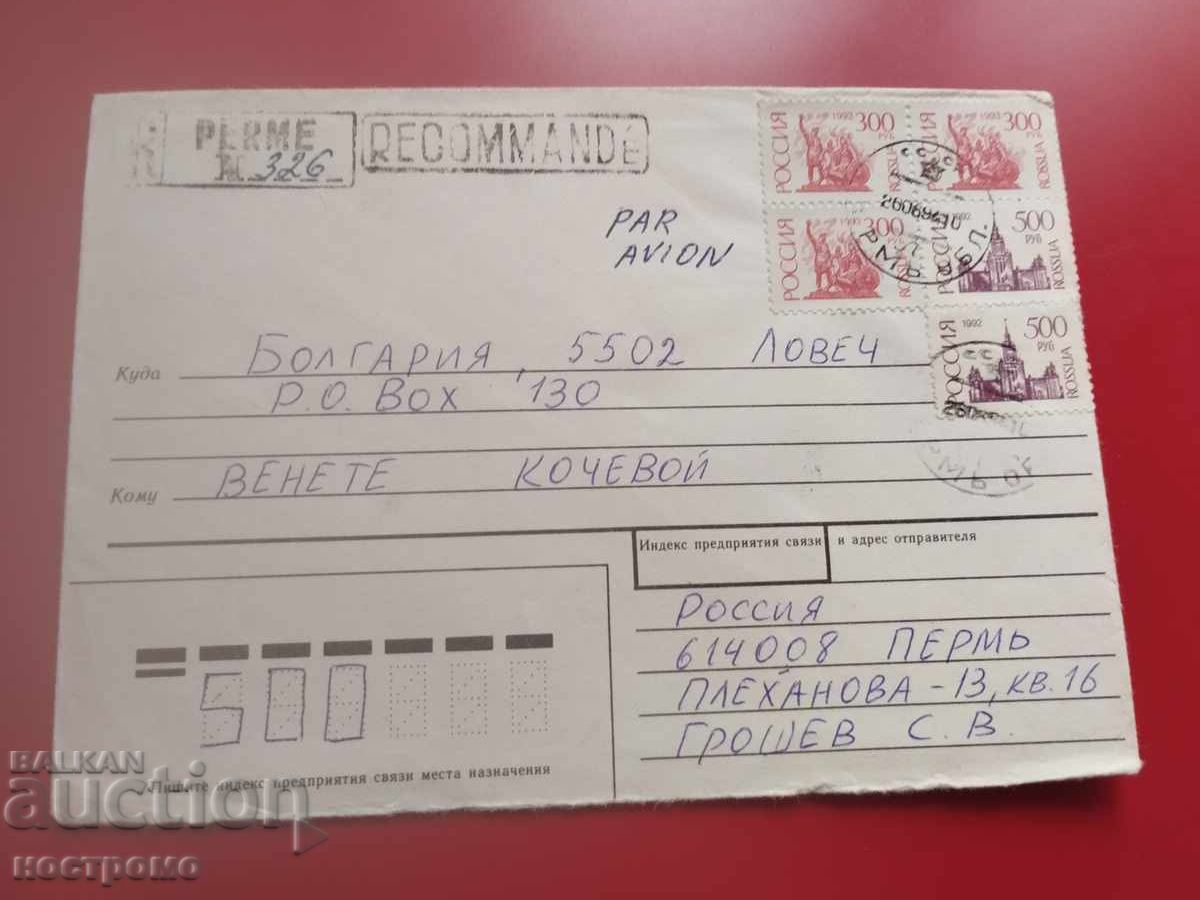 PERME
№ 326
RECOMMANDÉ
PAR
AVION
РОССИЯ 1992 300 РУБ ROSSIJA
РОССИЯ 1992 300 РУБ ROSSIJA
РОССИЯ 300 ROSSIJA
РОССИЯ 1992 500 РУБ ROSSIJA
РОССИЯ 1992 500 РУБ ROSSIJA
Куда БОЛГАРИЯ, 5502 ЛОВЕЧ
P.O. BOX 130
Кому ВЕНЕТЕ КОЧЕВОЙ
Индекс предприятия связи и адрес отправителя
РОССИЯ
614008 ПЕРМЬ
ПЛЕХАНОВА-13, КВ. 16
ГРОШЕВ С. В.
500
Пишите индекс предприятия связи места назначения
BALKAN
auction
костромо